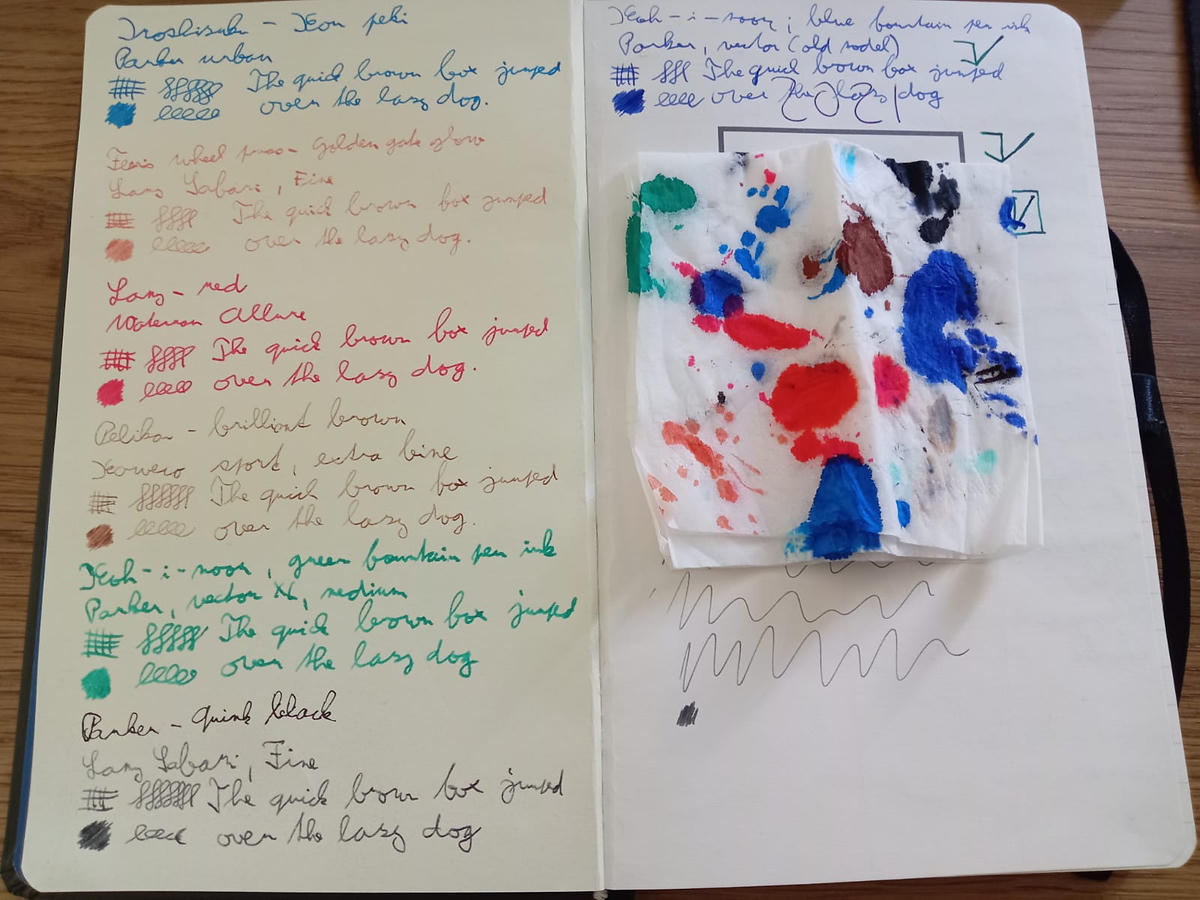 Iroshizuku - Kon peki
Parker urban
The quick brown fox jumped
over the lazy dog.
Ferris wheel press - Golden gate glow
Lamy Safari, Fine
The quick brown fox jumped
over the lazy dog.
Lamy - red
Waterman Allure
The quick brown fox jumped
over the lazy dog.
Pelikan - brilliant brown
Kaweco sport, extra fine
The quick brown fox jumped
over the lazy dog.
Koh-i-noor, green fountain pen ink
Parker, vector XL, medium
The quick brown fox jumped
over the lazy dog
Parker - quink black
Lamy Safari, Fine
The quick brown fox jumped
over the lazy dog
Koh-i-noor; blue fountain pen ink
Parker, vector (old model)
The quick brown fox jumped
over the lazy dog